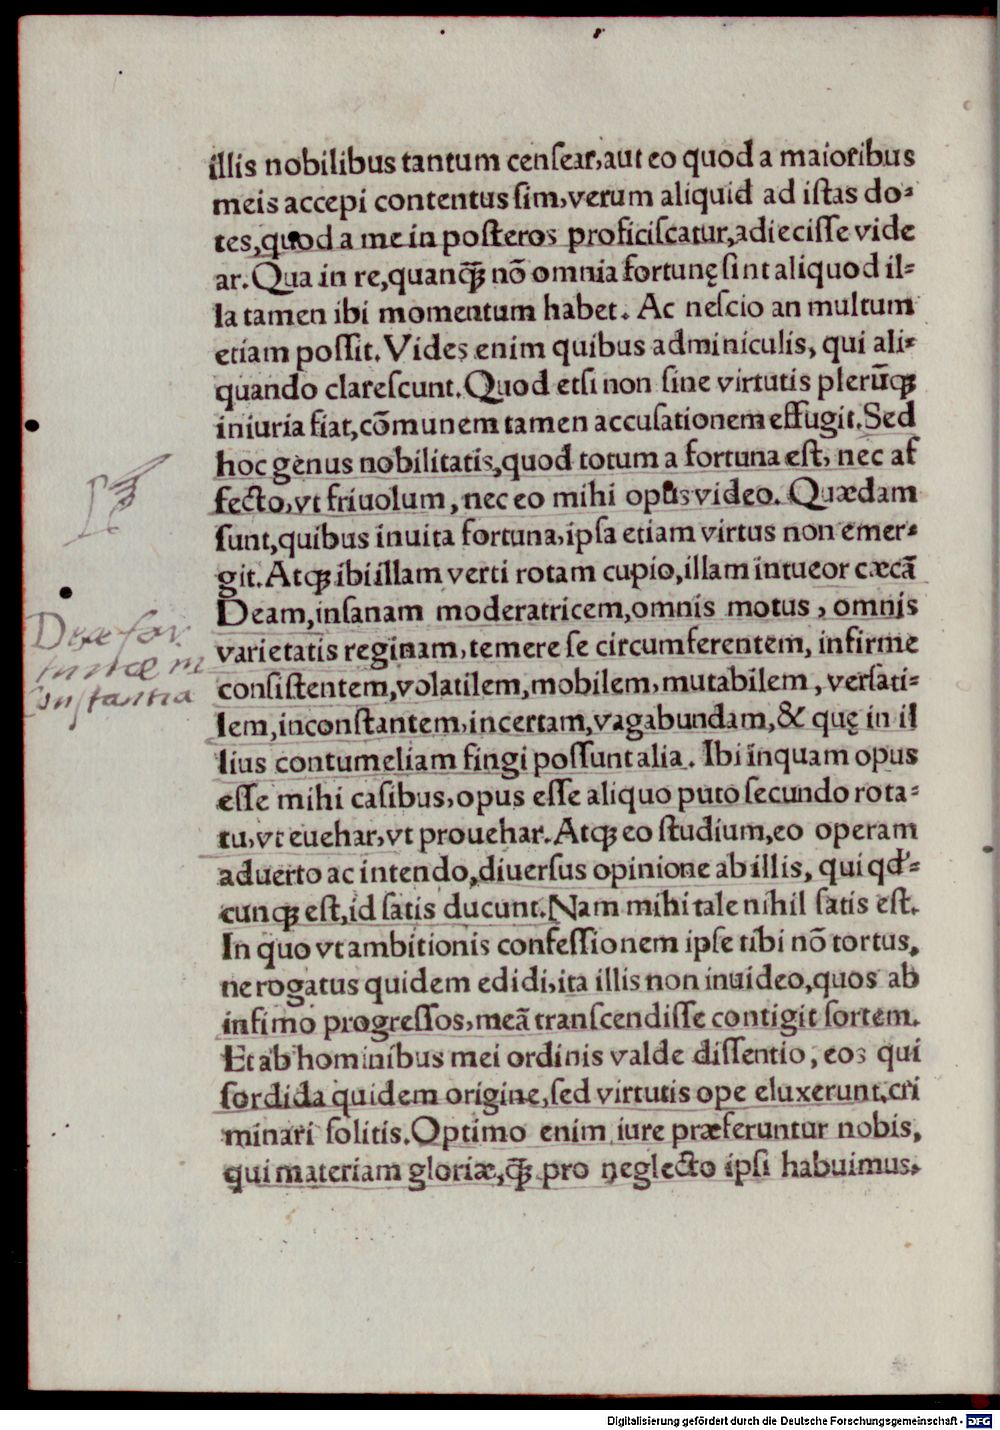 illis nobilibus tantum censear, aut eo quod a maioribus
meis accepi contentus sim, verum aliquid ad istas do-
tes, quod a me in posteros proficiscatur, adiecisse vide
ar. Qua in re, quanꝙ̃ nõ omnia fortunę sint aliquod il-
la tamen ibi momentum habet. Ac nescio an multum
etiam possit. Vides enim quibus adminiculis, qui ali-
quando clarescunt. Quod etsi non sine virtutis plerũꝗ
iniuria fiat, cõmunem tamen accusationem effugit. Sed
hoc genus nobilitatis, quod totum a fortuna est, nec af
fecto, vt friuolum, nec eo mihi opus video. Quædam
sunt, quibus inuita fortuna, ipsa etiam virtus non emer-
git. Atꝗ ibi illam verti rotam cupio, illam intueor cæcã
Deam, insanam moderatricem, omnis motus, omnis
varietatis reginam, temere se circumferentem, infirme
consistentem, volatilem, mobilem, mutabilem, versati-
lem, inconstantem, incertam, vagabundam, & quę in il
lius contumeliam fingi possunt alia. Ibi inquam opus
esse mihi casibus, opus esse aliquo puto secundo rota-
tu, vt euehar, vt prouehar. Atꝗ eo studium, eo operam
aduerto ac intendo, diuersus opinione ab illis, qui qd'-
cunꝗ est, id satis ducunt. Nam mihi tale nihil satis est.
In quo vt ambitionis confessionem ipse tibi nõ tortus,
ne rogatus quidem edidi, ita illis non inuideo, quos ab
infimo progressos, meã transcendisse contigit sortem.
Et ab hominibus mei ordinis valde dissentio, eos qui
sordida quidem origine, sed virtutis ope eluxerunt, cri
minari solitis. Optimo enim iure præferuntur nobis,
qui materiam gloriæ, ꝙ̃ pro neglecto ipsi habuimus.
Deæ for
tunæ in
constantia
Digitalisierung gefördert durch die Deutsche Forschungsgemeinschaft - DFG